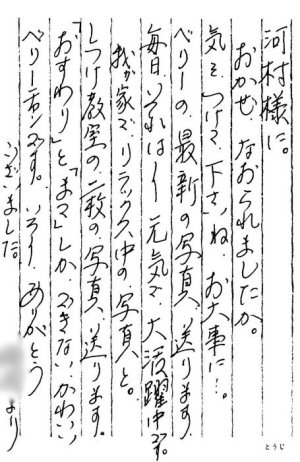 河村様に。
おかぜ なおられましたか。
気をつけて下さいね。お大事に…。
ベリーの最新の写真、送ります。
毎日、それは〱元気で大活躍中です。
我が家でリラックス中の写真と。
しつけ教室の二枚の写真、送ります。
「おすわり」と「まて」しかできないかわいい
ベリーチャンです。いろ〱ありがとう
ございました。
より
とうじ